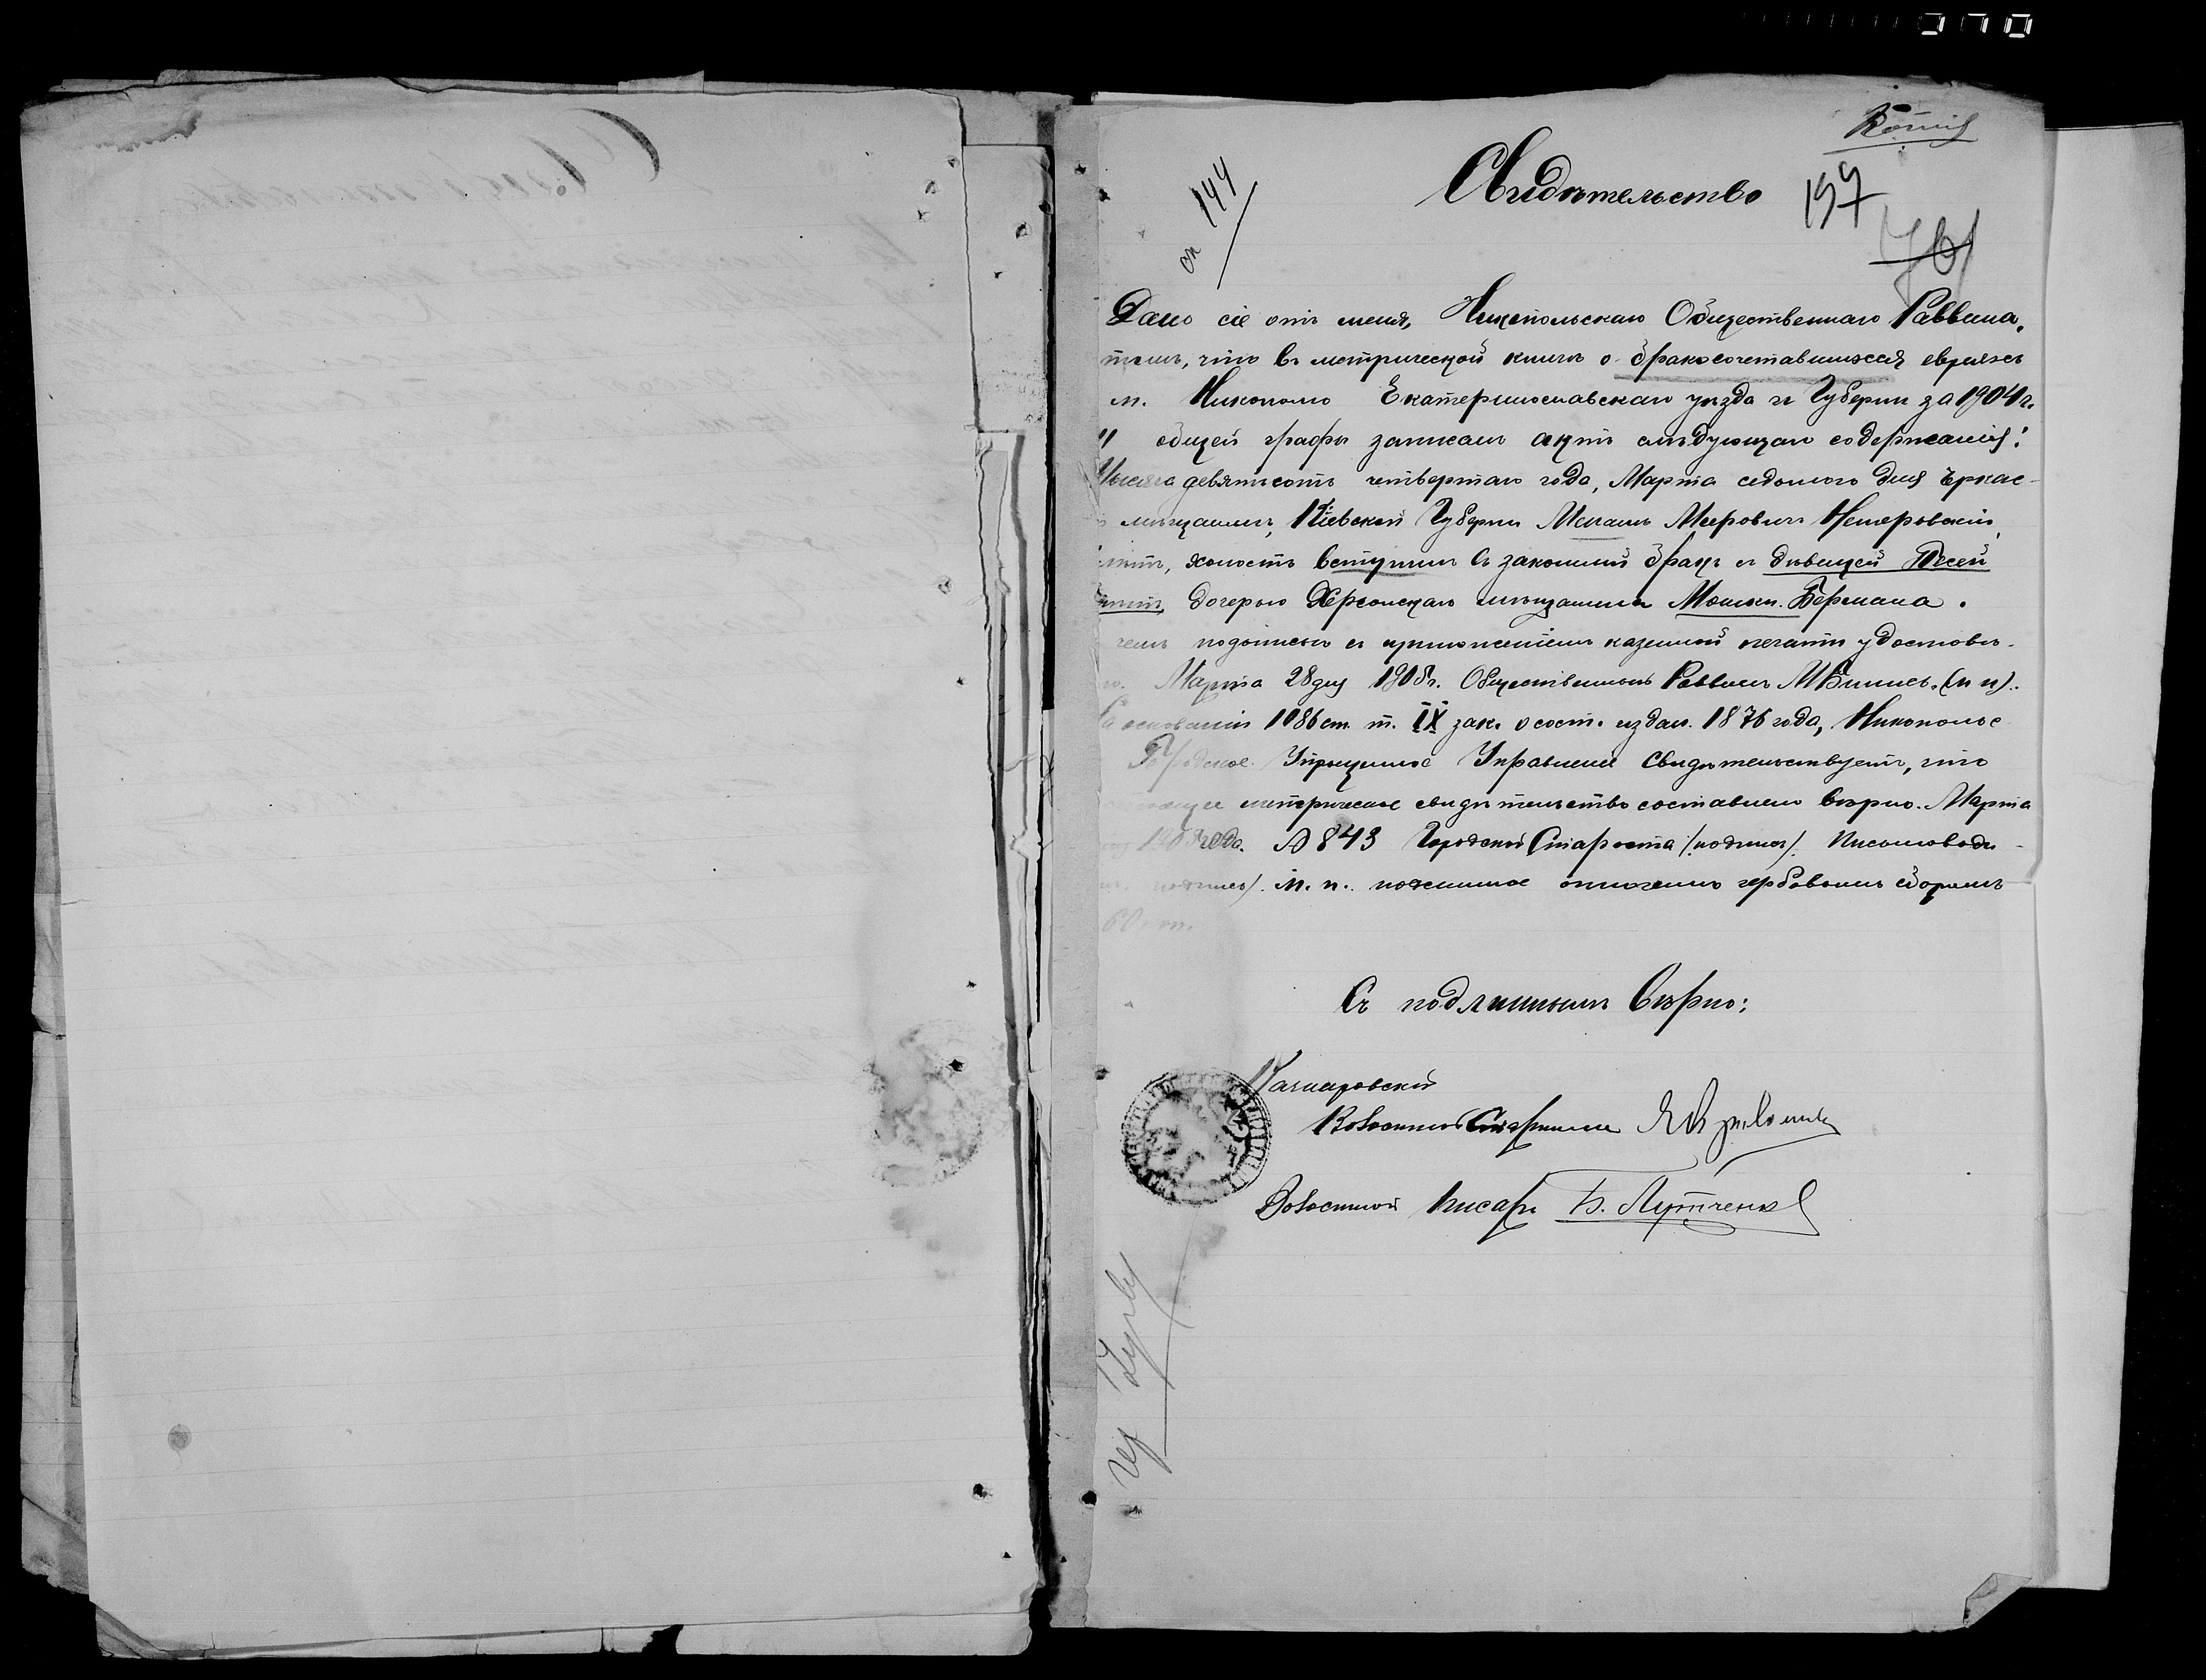 Копія
Свидѣтельство
197
76
144
Дано сіе отъ меня, Никопольскаго Общественнаго Раввина,
томъ, что въ метрической книгѣ о бракосочетавшихся евреяхъ
м. Никополю Екатеринославскаго уѣзда и Губерніи за 1904 г.
общей графы записанъ актъ слѣдующаго содержанія:
Тысяча девятьсотъ четвертаго года, Марта седьмого дня Черкас-
мѣщанинъ, Кіевской Губерніи Мееровичъ
лѣтъ, холостъ вступилъ въ законный бракъ съ дѣвицей Песей
лѣтъ, дочерью Херсонскаго мѣщанина Мошки Бермана.
чемъ подписью съ приложеніемъ казенной печати удостовѣ-
Марта 28 дня 1908 г. Общественный Раввинъ (м п).
основаніи 1086 ст. т. IX зак. о сост. издан. 1876 года, Никопольс
Городское Упрощенное Управленіе свидѣтельствуетъ, что
метрическое свидѣтельство составлено вѣрно. Марта
1908 года. № 843 Городской Староста /подпись/. Письмоводи-
подпись/. М. п. подлинное оплачено гербовымъ сборомъ
60 коп.
Съ подлиннымъ вѣрно:
Волостной Старшина
Волостной Писарь